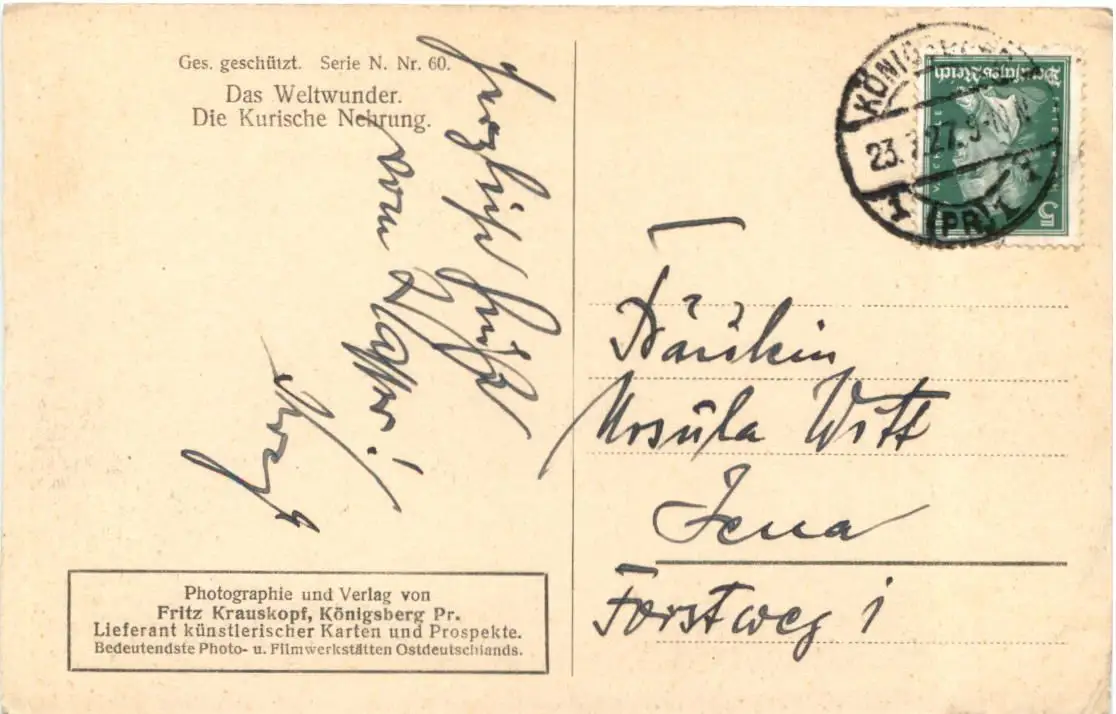 Ges. geschützt. Serie N. Nr. 60.
Das Weltwunder.
Die Kurische Nehrung.
Herzliche Grüße
vom
Photographie und Verlag von
Fritz Krauskopf, Königsberg Pr.
Lieferant künstlerischer Karten und Prospekte.
Bedeutendste Photo- u. Filmwerkstätten Ostdeutschlands.
KÖNIGSBERG
23. .27. 9-10 N
(PR) 1
Deutsches Reich
5
Fräulein
Ursula Witt
Jena
Forstweg 1